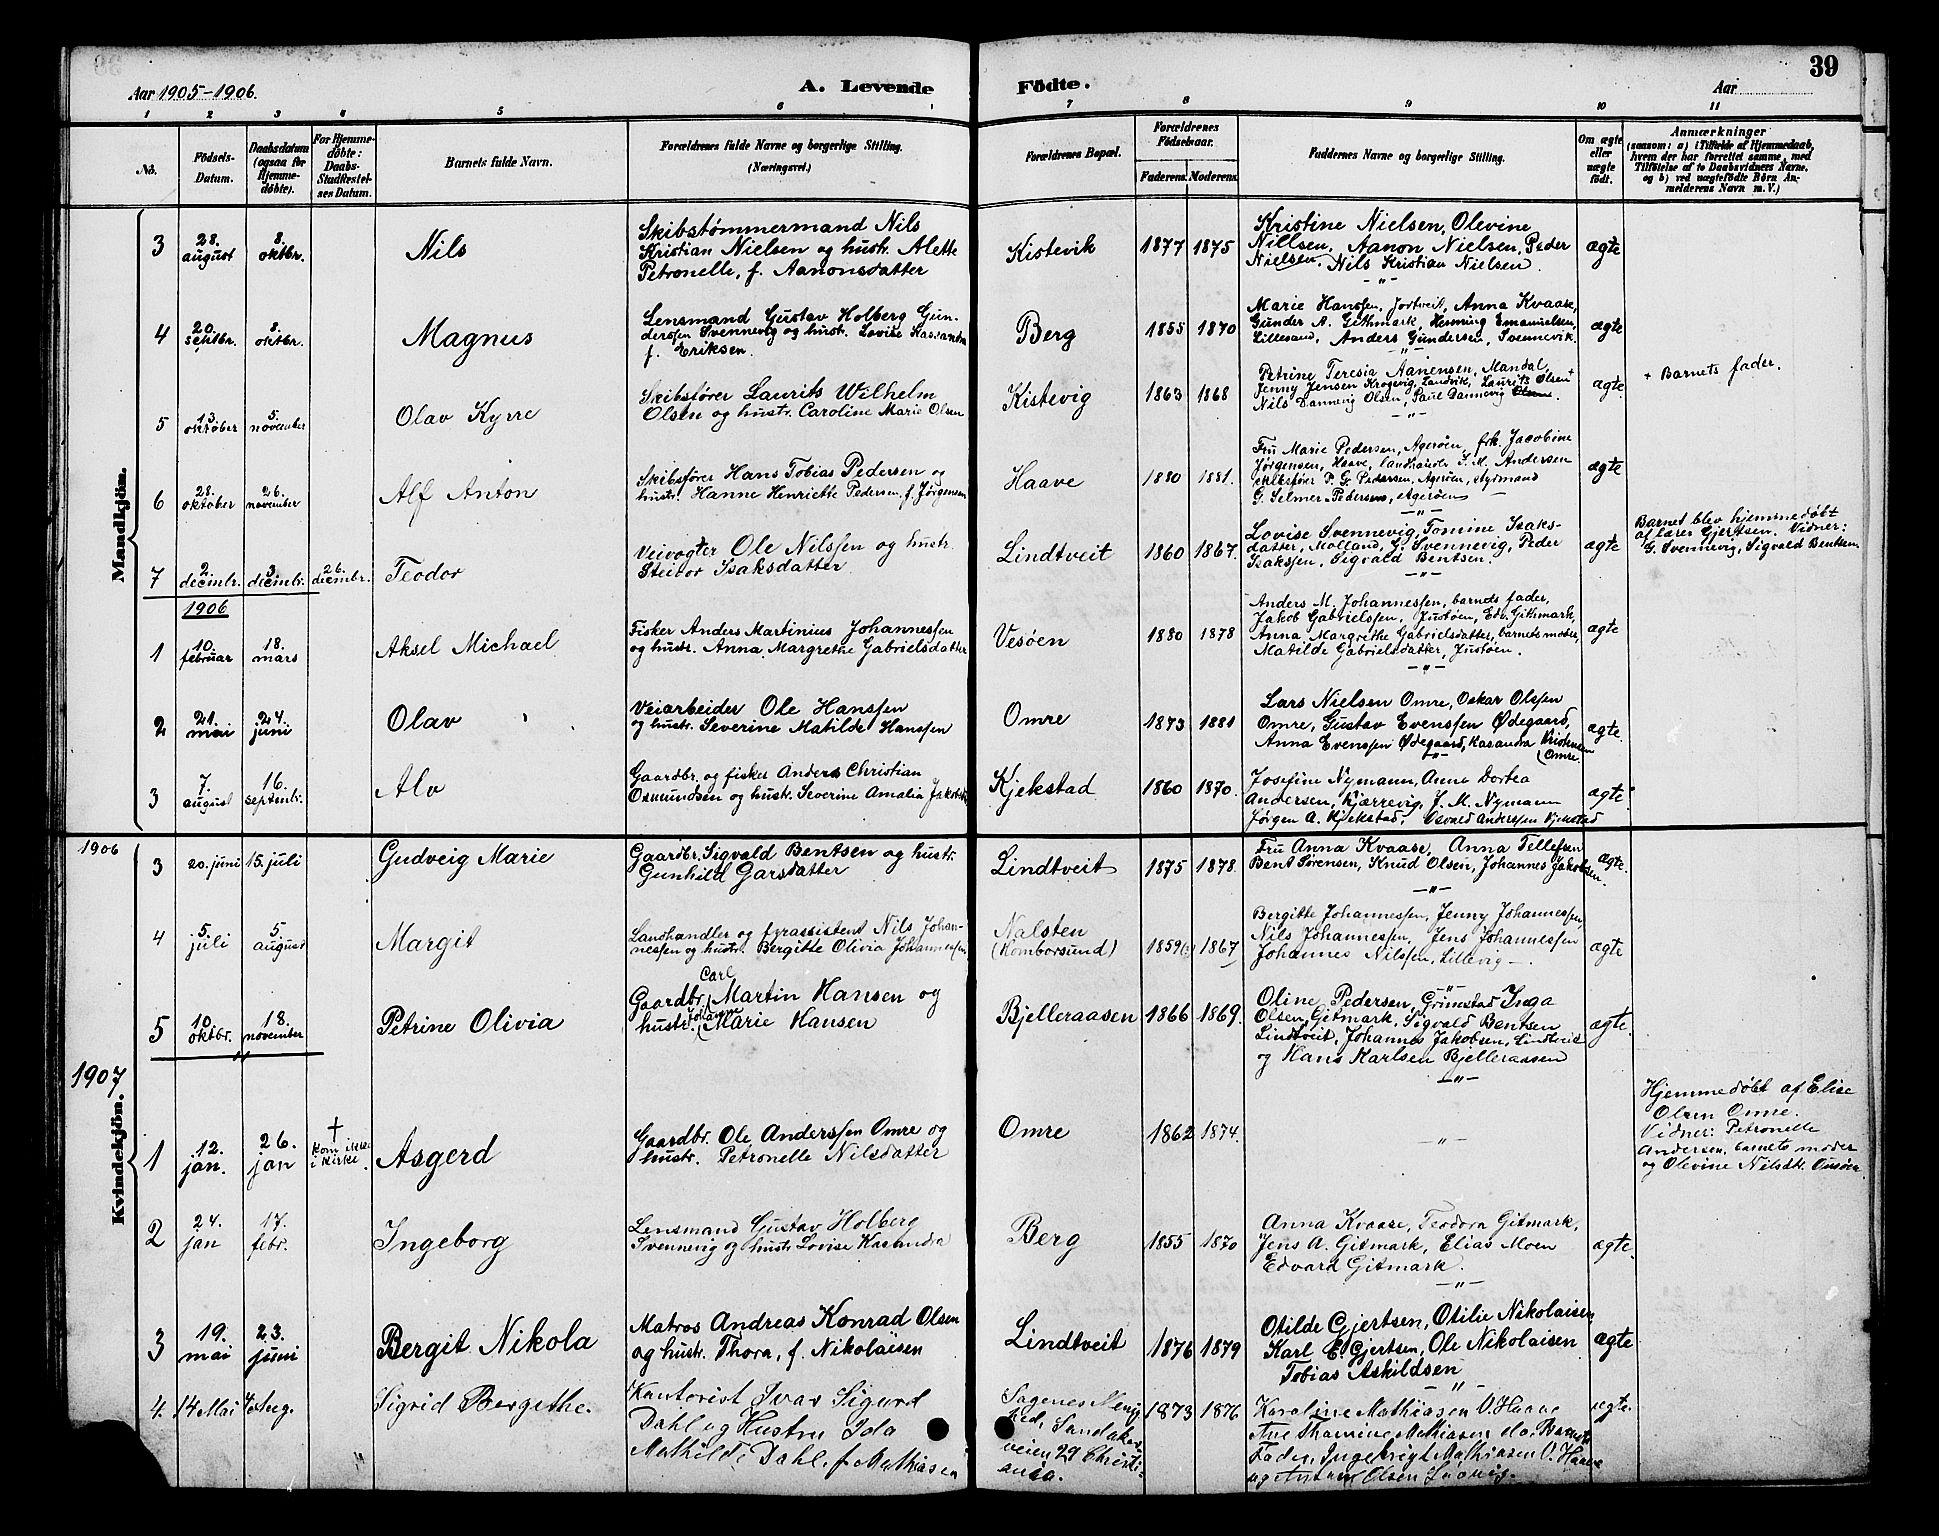 39
Aar 1905-1906.
A. Levende Födte.
Aar
1 2 3 4 5 6 7 8 9 10 11
No.
Födsels-Datum.
Daabsdatum (ogsaa for Hjemme-döbte).
For Hjemme-döbte: Daabs-Stadfæstel-ses Datum.
Barnets fulde Navn.
Forældrenes fulde Navne og borgerlige Stilling. (Næringsvei.)
Forældrenes Bopæl.
Forældrenes Födselsaar.
Faderens. Moderens.
Faddernes Navne og borgerlige Stilling.
Om ægte eller uægte födt.
Anmærkninger
(saasom: a) i Tilfælde af Hjemmedaab, hvem der har forrettet samme, med Tilföielse af to Daabsvidners Navne, og b) ved uægtefödte Börn An-melderens Navn m. V.)
Mandkjön.
3 28. august 8. oktbr. Nils
Skibstømmermand Nils
Kristian Nielsen og hustr. Alette
Petronelle, f. Aanonsdatter
Kistevik 1877 1875
Kristine Nielsen, Olevine
Nillsen, Aanon Nielsen, Peder
Nielsen, Nils Kristian Nielsen.
ægte
4 20. septbr. 8. oktbr. Magnus
Lensmand Gustav Holberg Gun-
dersen Svennevig og hustr. Lovise Kasandra
f. Eriksen.
Berg 1855 1870
Marie Hanssen, Jortveit, Anna Kvaase,
Gunder A. Githmark, Henning Emanuelsen,
Lillesand, Anders Gundersen, Svennevik.
ægte
5 13. oktober 5. november Olav Kyrre
Skibsfører Laurits Wilhelm
Olsen og hustr. Caroline Marie Olsen
Kistevig 1863 1868
Petrine Teresia Aanensen, Mandal,
Jenny Jensen Krogevig, Landvik, Laurits Olsen +
Nils Dannevig Olsen, Paul Dannevig Olsen.
ægte.
+ Barnets fader.
6 28. oktober 26. november Alf Anton
Skibsfører Hans Tobias Pedersen og
hustr. Hanne Henriette Pedersen, f. Jørgensen
Haave 1880 1881.
Fru Marie Pedersen, Agerøen, frk. Jacobine
Jørgensen, Haave, landhandler J. M. Andersen
skibsfører P. G. Pedersen, Agerøen, styrmand
G. Selmer Pedersen, Agerøen
ægte
7 2. decembr. 3. decembr. 26. decembr. Teodor
Veivogter Ole Nilssen og hustr.
Steivor Isaksdatter
Lindtveit 1860 1867.
Lovise Svennevig, Tomine Isaks-
datter, Molland, G. Svennevig, Peder
Isaksen, Sigvald Bentsen.
ægte
Barnet blev hjemmedøbt
af lærer Gjertsen. Vidner:
G. Svennevig, Sigvald Bentsen
1906
1 10. februar 18. mars Aksel Michael
Fisker Anders Martinius Johannessen
og hustr. Anna Margrethe Gabrielsdatter
Vesøen 1880 1878
Anders M. Johannessen, barnets fader,
Jakob Gabrielsen, Justøen, Edv. Githmark,
Anna Margrethe Gabrielsdatter, barnets moder,
Matilde Gabrielsdatter, Justøen.
ægte
2 21. mai 24. juni Olav
Veiarbeider Ole Hanssen
og hustr. Severine Matilde Hanssen
Omre 1873 1881
Lars Nielsen Omre, Oskar Olssen
Omre, Gustav Evenssen Ødegaard,
Anna Evenssen Ødegaard, Kasandra Kristensen
Omre
ægte.
3 7. august 16. septembr. Alv
Gaardbr. og fisker Anders Christian
Osmundsen og hustr. Severine Amalia Jakobsd.
Kjekstad 1860 1870.
Josefine Nymann, Anne Dortea
Andersen, Kjærrevig, J. M. Nymann
Jørgen A. Kjekstad, Osvald Anderssen Kjekstad
ægte
Kvindekjön.
1906
3 20. juni 15. juli Gudveig Marie
Gaardbr. Sigvald Bentsen og hustr.
Gunhild Garsdatter
Lindtveit 1875 1878.
Fru Anna Kvaase, Anna Tellefsen
Bent Sørensen, Knud Olsen, Johannes Jakobsen.
ægte.
4 5. juli 5. august Margit
Landhandler og fyrassistent Nils Johan-
nessen og hustr. Bergitte Olivia Johannessen
Nalsten
(Homborsund)
1859 1867
Bergitte Johannessen, Jenny Johannessen,
Nils Johannessen, Jens Johannessen
Johannes Nilssen, Lillevig
ægte
5 10. oktbr. 18. november Petrine Olivia
Gaardbr. Carl Martin Hansen og
hustr. Johanne Marie Hansen
Bjelleraasen 1866 1869.
Oline Pedersen, Grimstad Inga
Olsen, Gitmark, Sigvald Bentsen
Lindtveit, Johannes Jakobsen, Lindtveit
og Hans Karlsen Bjelleraasen
ægte.
1907
1 12. jan. 26. jan † kom ikke i kirke. Asgerd
Gaardbr. Ole Anderssen Omre og
hustr. Petronelle Nilsdatter
Omre 1862 1874.
ægte.
Hjemmedøbt af Elise
Olsen Omre.
Vidner: Petronelle
Andersen, barnets moder
og Olevine Nilsdtr.
2 24. jan 17. febr. Ingeborg
Lensmand Gustav Holberg
Svennevig og hustr. Lovise Kasandra
Berg 1855 1870
Anna Kvaase, Teodora Gitmark,
Jens A. Gitmark, Elias Moen
Edvard Gitmark.
ægte.
3 19. mai 23. juni Bergit Nikola
Matros Andreas Konrad Olsen
og hustr. Thora, f. Nikolaisen
Lindtveit 1876 1879
Otilde Gjertsen, Otilie Nikolaisen
Karl E. Gjertsen, Ole Nikolaisen
Tobias Askildsen
ægte
4. 14 Mai 4 Aug. Sigrid Bergithe.
Kontorist Ivar Sigurd
Dahl og Hustru Ida
Mathilde Dahl, f. Mathiasen
Sagenes Menig
hed, Sandaker
veien 29 Christi-
ania.
1873 1876
Karoline Mathiasen V. Haave
Ane Thomine Mathiasen do. Barnets
Fader, Ingebregt Mathiasen V. Haave
og Olsen
ægte.